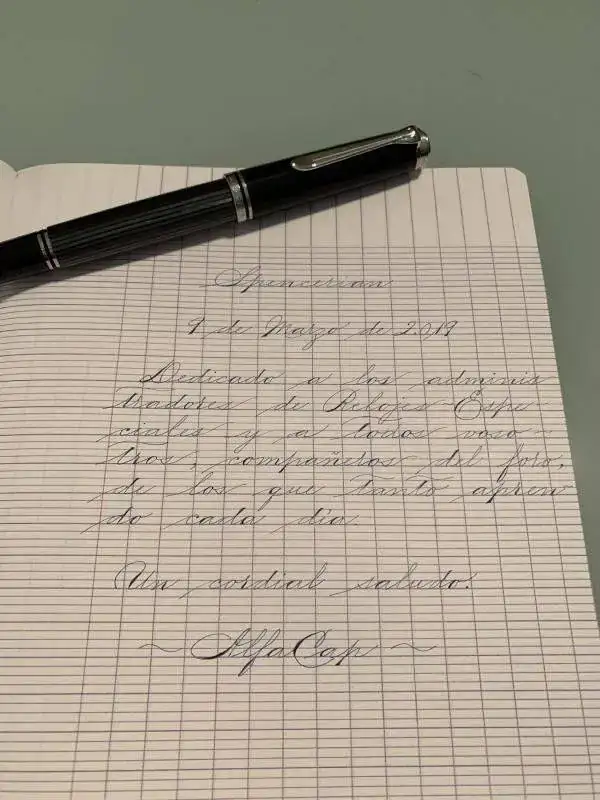 Spencerian
9 de Marzo de 2.019
Dedicado a los adminis
tradores de Relojes Espe
ciales y a todos voso-
tros, compañeros del foro,
de los que tanto apren
do cada día.
Un cordial saludo.
~ AlfaCap ~